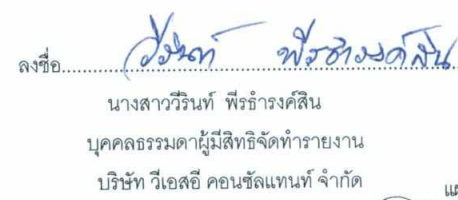 ลงชื่อ..... วีรินท์ พีรธำรงค์สิน
นางสาววีรินท์ พีรธำรงค์สิน
บุคคลธรรมดาผู้มีสิทธิจัดทำรายงาน
บริษัท วีเอสอี คอนซัลแทนท์ จำกัด